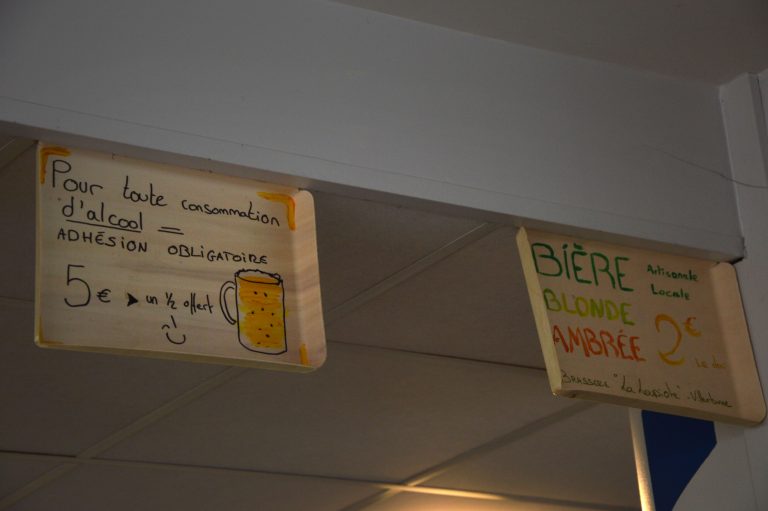 Pour toute consommation
d'alcool =
ADHÉSION OBLIGATOIRE
5€ ➤ un ½ offert
BIÈRE Artisanale
Locale
BLONDE
AMBRÉE 2€
Le